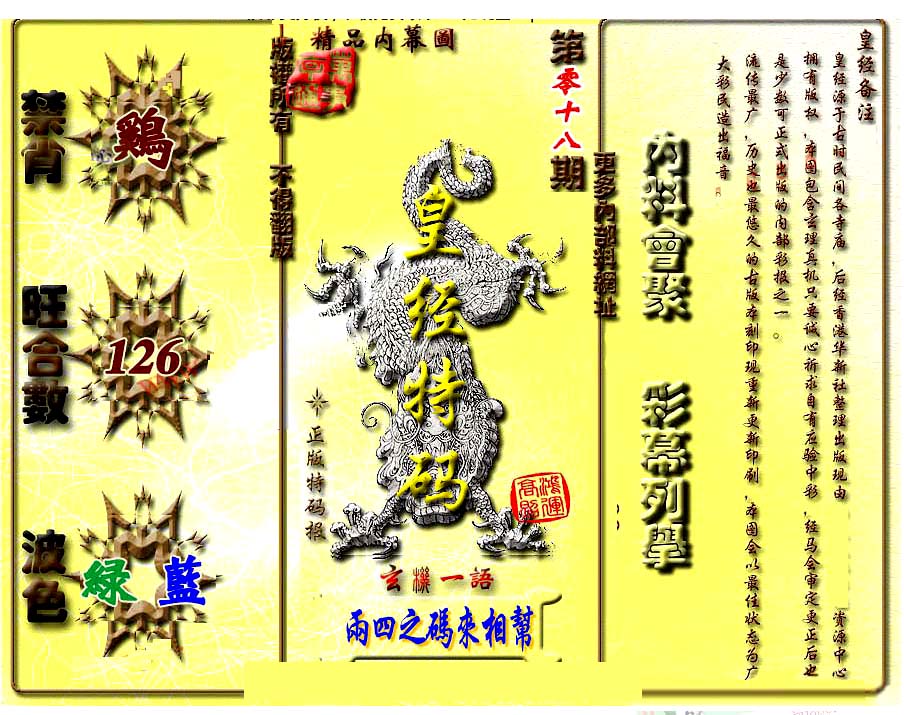 皇经备注
皇经源于古时民间各寺庙，后经香港华新社整理出版现由
资源中心
拥有版权，本图包含玄理真机只要诚心祈求自有应验中彩，经马会审定更正后也
是少数可正式出版的内部彩报之一。
流传最广，历史也最悠久的古版本刻印现重新更新印刷，本图会以最佳状态为广
大彩民造出福音
内料會聚
彩幕列舉
更多内部料網址
第零十八期
精品内幕圖
版權所有
不得翻版
皇经特码
正版特码报
鴻運高照
玄機一語
兩四之碼來相幫
禁肖
鷄
旺合數
126
波色
緑
藍